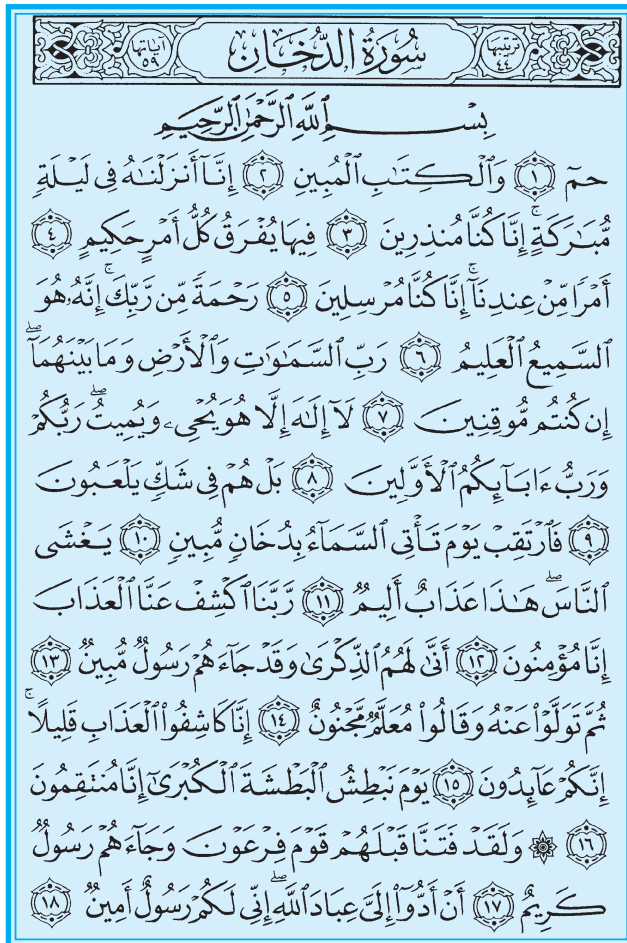 ترتيبها ٤٤ سُورَةُ الدُّخَانِ آياتها ٥٩
بِسْمِ اللَّهِ الرَّحْمَٰنِ الرَّحِيمِ
حمٓ ١ وَٱلْكِتَٰبِ ٱلْمُبِينِ ٢ إِنَّآ أَنزَلْنَٰهُ فِى لَيْلَةٍ
مُّبَٰرَكَةٍ ۚ إِنَّا كُنَّا مُنذِرِينَ ٣ فِيهَا يُفْرَقُ كُلُّ أَمْرٍ حَكِيمٍ ٤
أَمْرًا مِّنْ عِندِنَآ ۚ إِنَّا كُنَّا مُرْسِلِينَ ٥ رَحْمَةً مِّن رَّبِّكَ ۚ إِنَّهُۥ هُوَ
ٱلسَّمِيعُ ٱلْعَلِيمُ ٦ رَبِّ ٱلسَّمَٰوَٰتِ وَٱلْأَرْضِ وَمَا بَيْنَهُمَآ ۖ
إِن كُنتُم مُّوقِنِينَ ٧ لَآ إِلَٰهَ إِلَّا هُوَ يُحْىِۦ وَيُمِيتُ ۖ رَبُّكُمْ
وَرَبُّ ءَابَآئِكُمُ ٱلْأَوَّلِينَ ٨ بَلْ هُمْ فِى شَكٍّ يَلْعَبُونَ
٩ فَٱرْتَقِبْ يَوْمَ تَأْتِى ٱلسَّمَآءُ بِدُخَانٍ مُّبِينٍ ١٠ يَغْشَى
ٱلنَّاسَ ۖ هَٰذَا عَذَابٌ أَلِيمٌ ١١ رَّبَّنَا ٱكْشِفْ عَنَّا ٱلْعَذَابَ
إِنَّا مُؤْمِنُونَ ١٢ أَنَّىٰ لَهُمُ ٱلذِّكْرَىٰ وَقَدْ جَآءَهُمْ رَسُولٌ مُّبِينٌ ١٣
ثُمَّ تَوَلَّوْا۟ عَنْهُ وَقَالُوا۟ مُعَلَّمٌ مَّجْنُونٌ ١٤ إِنَّا كَاشِفُوا۟ ٱلْعَذَابِ قَلِيلًا ۚ
إِنَّكُمْ عَآئِدُونَ ١٥ يَوْمَ نَبْطِشُ ٱلْبَطْشَةَ ٱلْكُبْرَىٰٓ إِنَّا مُنتَقِمُونَ
١٦ ۞ وَلَقَدْ فَتَنَّا قَبْلَهُمْ قَوْمَ فِرْعَوْنَ وَجَآءَهُمْ رَسُولٌ
كَرِيمٌ ١٧ أَنْ أَدُّوٓا۟ إِلَىَّ عِبَادَ ٱللَّهِ ۖ إِنِّى لَكُمْ رَسُولٌ أَمِينٌ ١٨